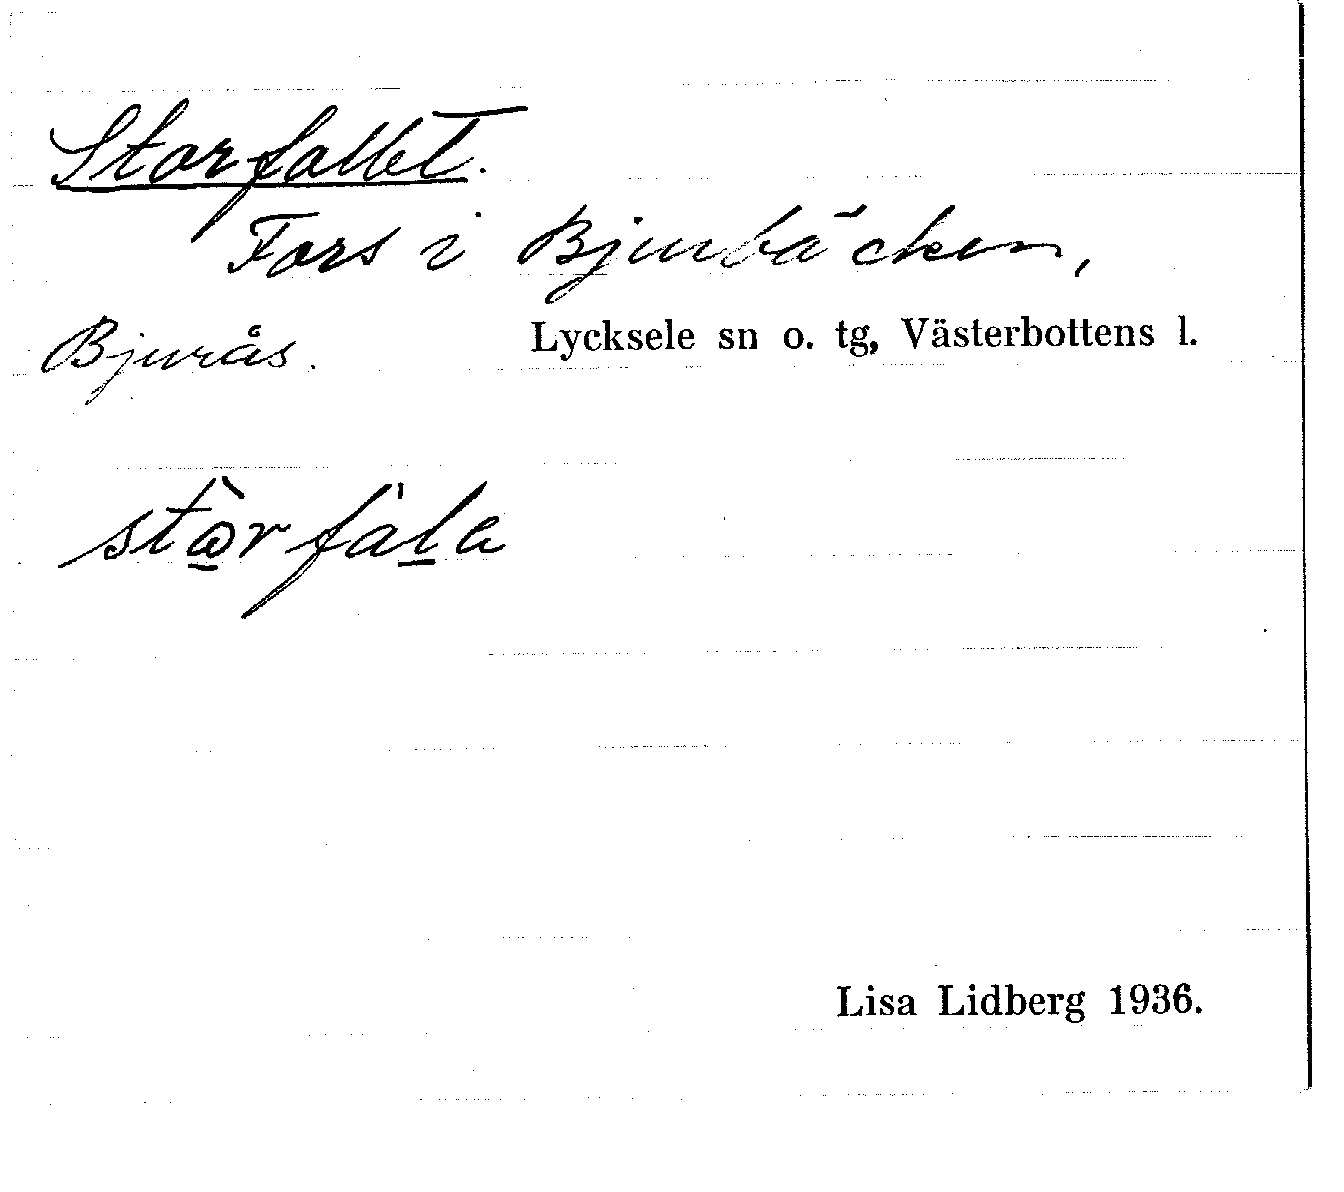 Storfallet.
Fors i Bjurbäcken,
Bjurås. Lycksele sn o. tg, Västerbottens l.
Lisa Lidberg 1936.